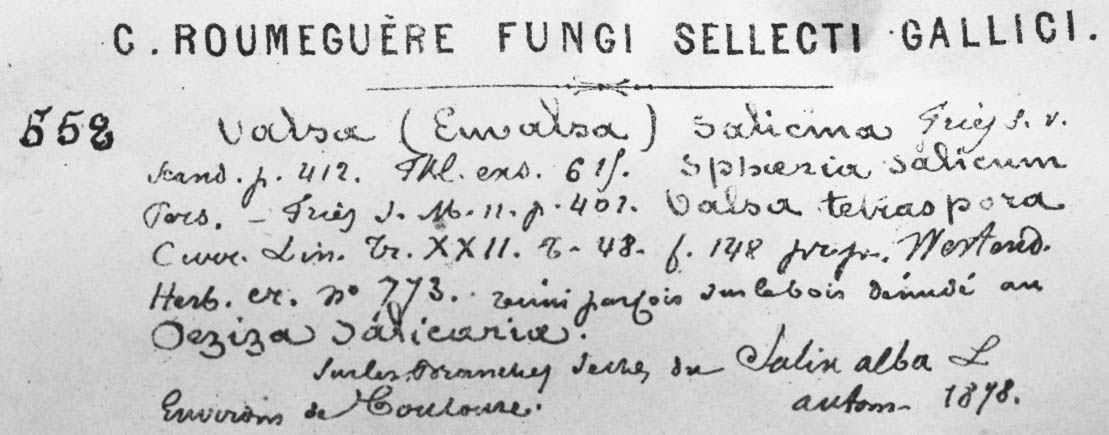 C. ROUMEGUÈRE FUNGI SELLECTI GALLICI.
558 Valsa (Euvalsa) Salicina Fries S. v.
scand. p. 412. Thl. exs. 615. Sphæria salicum
Pers. – Fries S. M. 11. p. 401. Valsa tetraspora
Curr. Lin. Tr. XXII. t. 48. f. 148 prp. Westend.
Herb. cr. no 773. réuni parfois sur le bois dénudé au
Peziza Salicaria.
Sur les Branches seches du Salix alba L
Environs de Toulouse. autom. 1878.